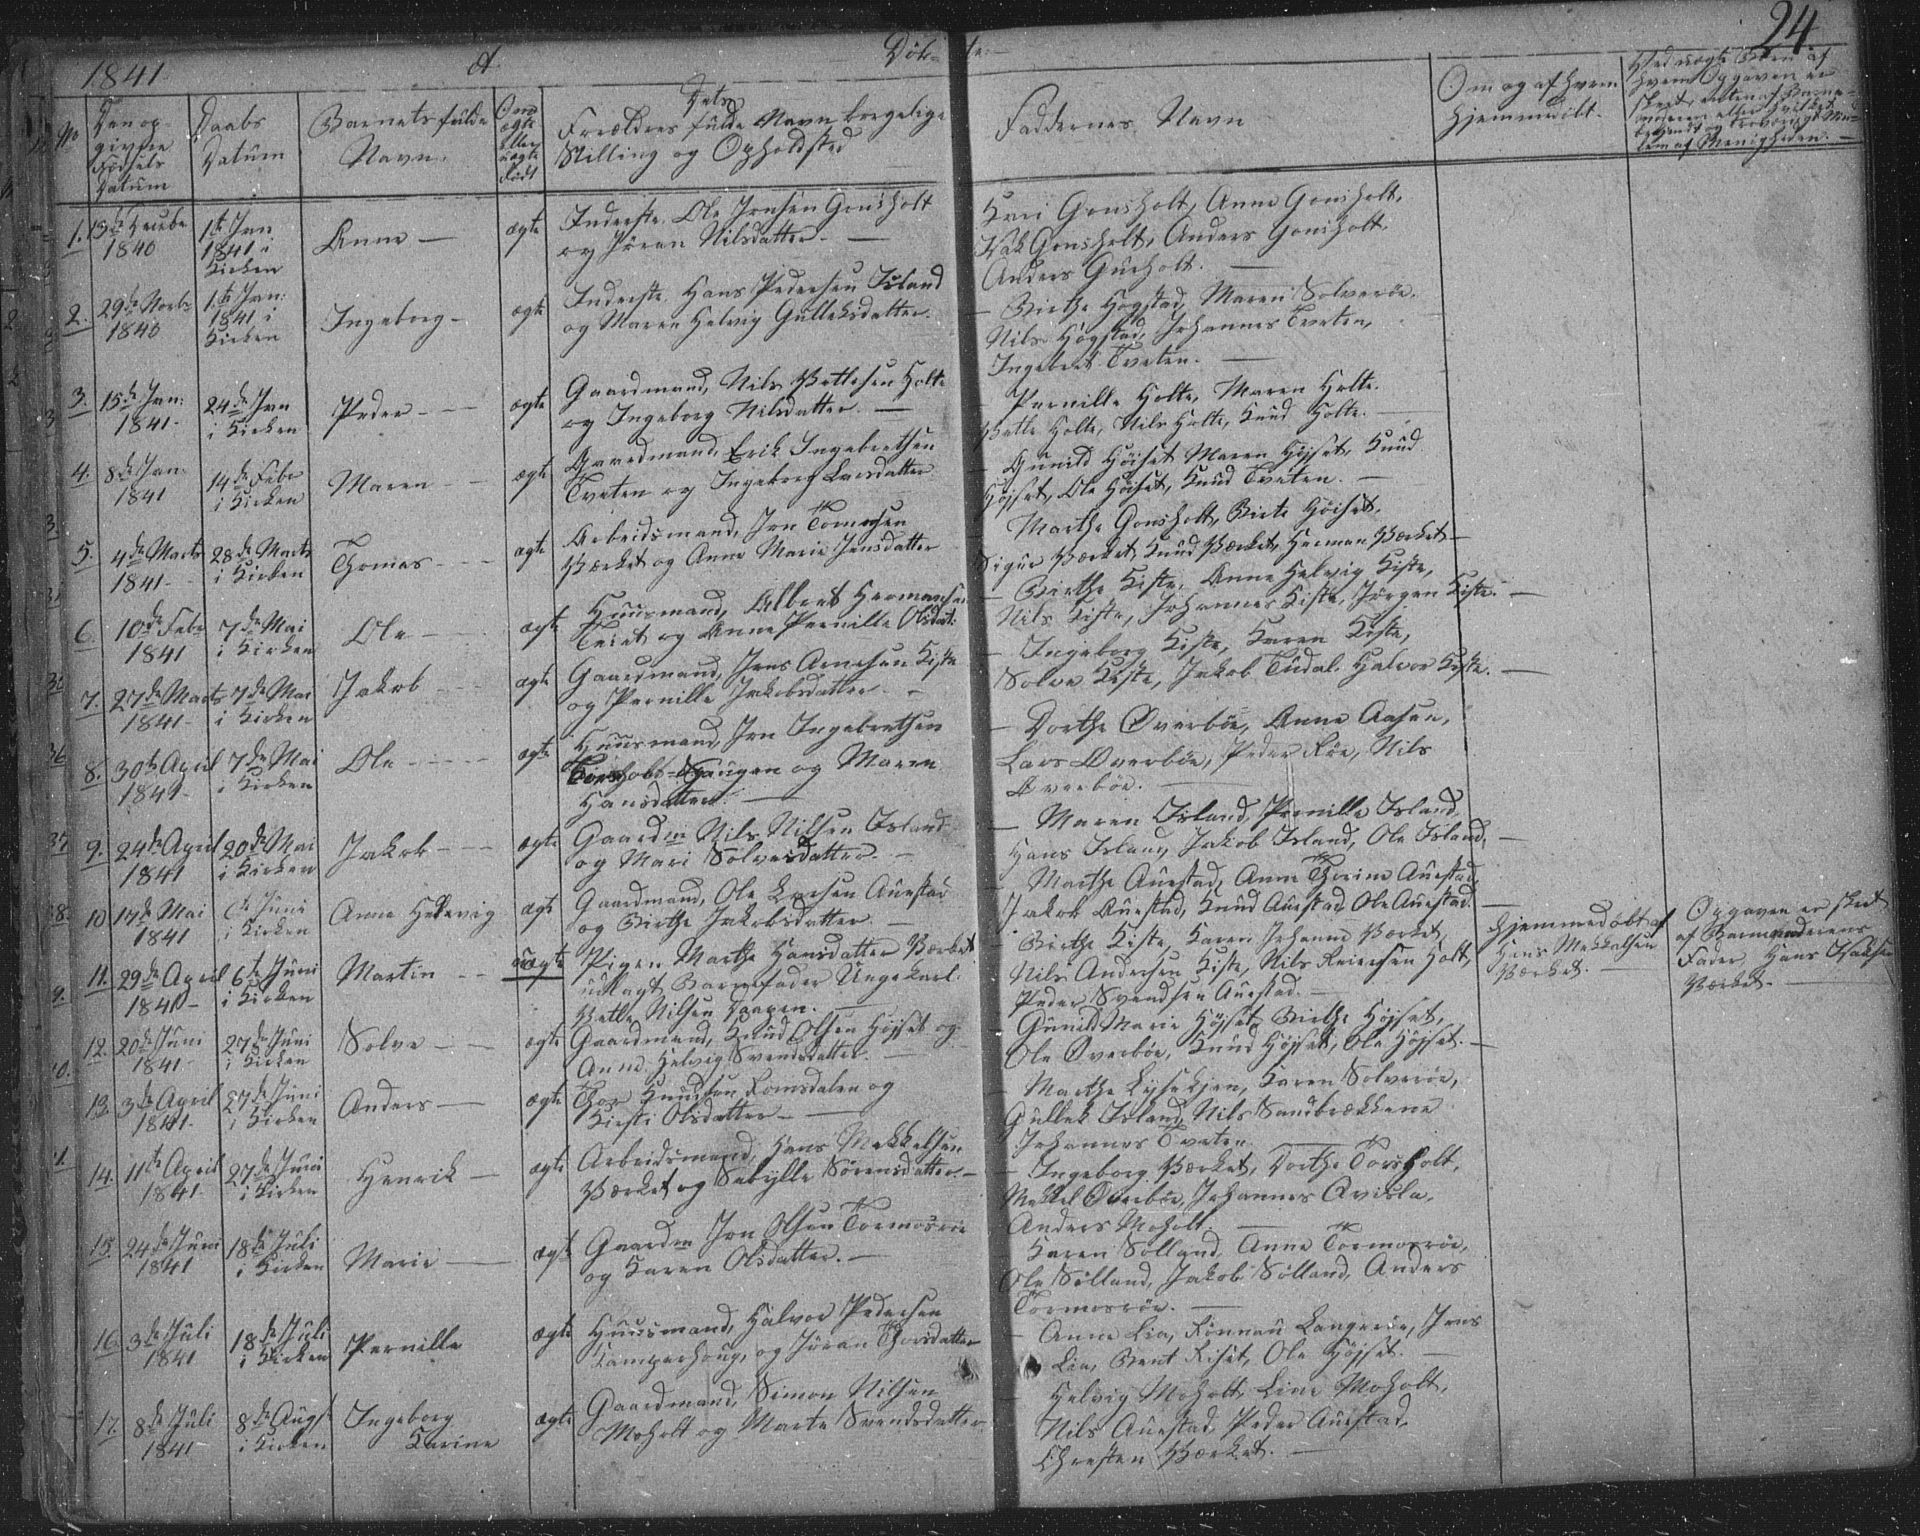 24.
1841. A. Döb- te.
No
Den op-
givne
Födsels
Datum
Daabs
Datum
Barnets fulde
Navn.
Om
ægte
eller
uægte
födt
Dets
Forældres fulde Navn borgelige
Stilling og Opholdsted
Faddernes Navn
Om og af hvem
hjemmedöbt.
1. 13de
1840
1te Jan
1841 i
Kirken
Anne —
ægte
Inderste Ole Jensen Gonsholt
og Jöran Nilsdatter. —
Kari Gonsholt, Anne Gonsholt,
Isak Gonsholt, Anders Gonsholt,
Anders Gurholt. —
2. 29de Novbr
1840
1te Jan:
1841 i
Kirken
Ingeborg —
ægte
Inderste Hans Pedersen Island
og Maren Helvig Gulleksdatter.
— Birthe Högstad, Maren Solveröe.
Nils Högstad, Johannes Tveten,
Ingebret Tveten. —
3. 15de Jan:
1841.
24de Jan
i Kirken
Peder —
ægte
Gaardmand, Nils Vetlesen Holte
og Ingeborg Nilsdatter. —
Pernille Holte, Maren Holte.
Vetle Holte, Nils Holte, Knud Holte. —
4. 8de Jan:
1841
14de Febr
i Kirken
Maren —
ægte
Gaardmand, Erik Ingebrethsen
Tveten og Ingeborg Larsdatter
— Gunild Höiset, Maren Höjset, Knud
Höjset, Ole Höiset, Knud Tveten. —
5. 4de Marts
1841
28de Marts
i Kirken
Thomas —
ægte
Arbeidsmand, Jon Tomesen
Værket og Anne Marie Jensdatter
Marthe Gonsholt, Birte Höiset,
Sigur Værket, Knud Værket, Herman Værket —
6. 10de Febr
1841
7de Mai
i Kirken
Ole —
ægte
Huusmand, Albret Hermansen
og Anne Pernille Olsdat:
— Birthe Kiste, Anne Helvig Kiste,
Nils Kiste, Johannes Kiste, Jörgen Kiste. —
7. 27de Marts
1841
7de Mai
i Kirken
Jakob —
ægte
Gaardmand, Jens Arnesen Kiste
og Pernille Jakobsdatter. —
— Ingeborg Kiste, Karen Kiste,
Solve Kiste, Jakob Tudal. Halvor Kiste. —
8. 30te April
1841
7de Mai
i Kirken
Ole —
ægte
Huusmand, Jon Ingebrethsen
og Maren
Hansdatter. —
— Dorthe Överböe, Anne Aasen,
Lars Överböe, Peder Röe, Nils
Överböe. —
9. 24de April
1841
20de Mai
i Kirken
Jakob —
ægte
Gaardm Nils Nilsen Island
og Mari Solvesdatter. —
— Maren Island, Pernille Island,
Hans Island, Jakob Island, Ole Island, —
10. 17de Mai
1841
6te Juni
i Kirken
Anne Helevig
ægte
Gaardmand, Ole Larsen Auestad
og Birthe Jakobsdatter —
— Marthe Auestad, Anne Thorine Auestad,
Jakob Auestad, Knud Auestad, Ole Auestad. —
11. 29de April
1841 —
6te Juni
i Kirken
Martin —
uægte
Pigen Marthe Hansdatter Værket
udlagt Barnefader Ungekarl
Vetle Nilsen
— Birthe Kiste, Karen Johanne Værket,
Nils Andersen Kiste, Nils Reiersen Holt,
Peder Svendsen Auestad. —
Hjemmedöbt af
Hans Mekkelsen
Værket. —
Opgaven er skeet
af Barnemoderens
Fader Hans Isaksen
Værket. —
12. 20de Juni
1841
27de Juni
i Kirken
Solve —
ægte
Gaardmand, Knud Olsen Höjset og
Anne Helvig Svendsdatter. —
Gunild Marie Höjset, Birthe Höjset,
Ole Överböe, Knud Höjset, Ole Höjset. —
13. 3de April
1841
27de Juni
i Kirken
Anders —
ægte
Thor Knudsen Romsdalen og
Kirsti Olsdatter —
— Marthe Lysekjen, Karen Solveröe,
Gullek Island, Nils Sandbrækkene
Johannes Tveten. —
14. 11te April
1841
27de Juni
i Kirken
Henrik —
ægte
Arbeidsmand, Hans Mekkelsen
Værket og Sebylle Sörensdatter —
— Ingeborg Værket, Dorthe Torsholt,
Mekkel Överböe, Johannes
Anders Moholt. —
15. 24de Juni
1841
18de Juli
i Kirken
Marie —
ægte
Gaardm Jon Olsen Tormosröe
og Karen Olsdatter. —
Karen Sölland, Anne Tormosröe,
Ole Sölland, Jakob Sölland, Anders
Tormosröe. —
16. 3de Juli
1841
18de Juli
i Kirken
Pernille
ægte
Huusmand, Halvor Pedersen
Kamperhoug, og Jöran Thorsdatter
— Anne Lia, Rönnau Langeröe, Jens
Lia, Bent Riset, Ole Höjset. —
17. 8de Juli
1841
8de Augst
i Kirken
Ingeborg
Karine
ægte
Gaardmand, Simon Nilsen
Moholt og Marte Svendsdatter
Helvig Moholt, Line Moholt,
Nils Auestad, Peder Auestad,
Christen Værket. —